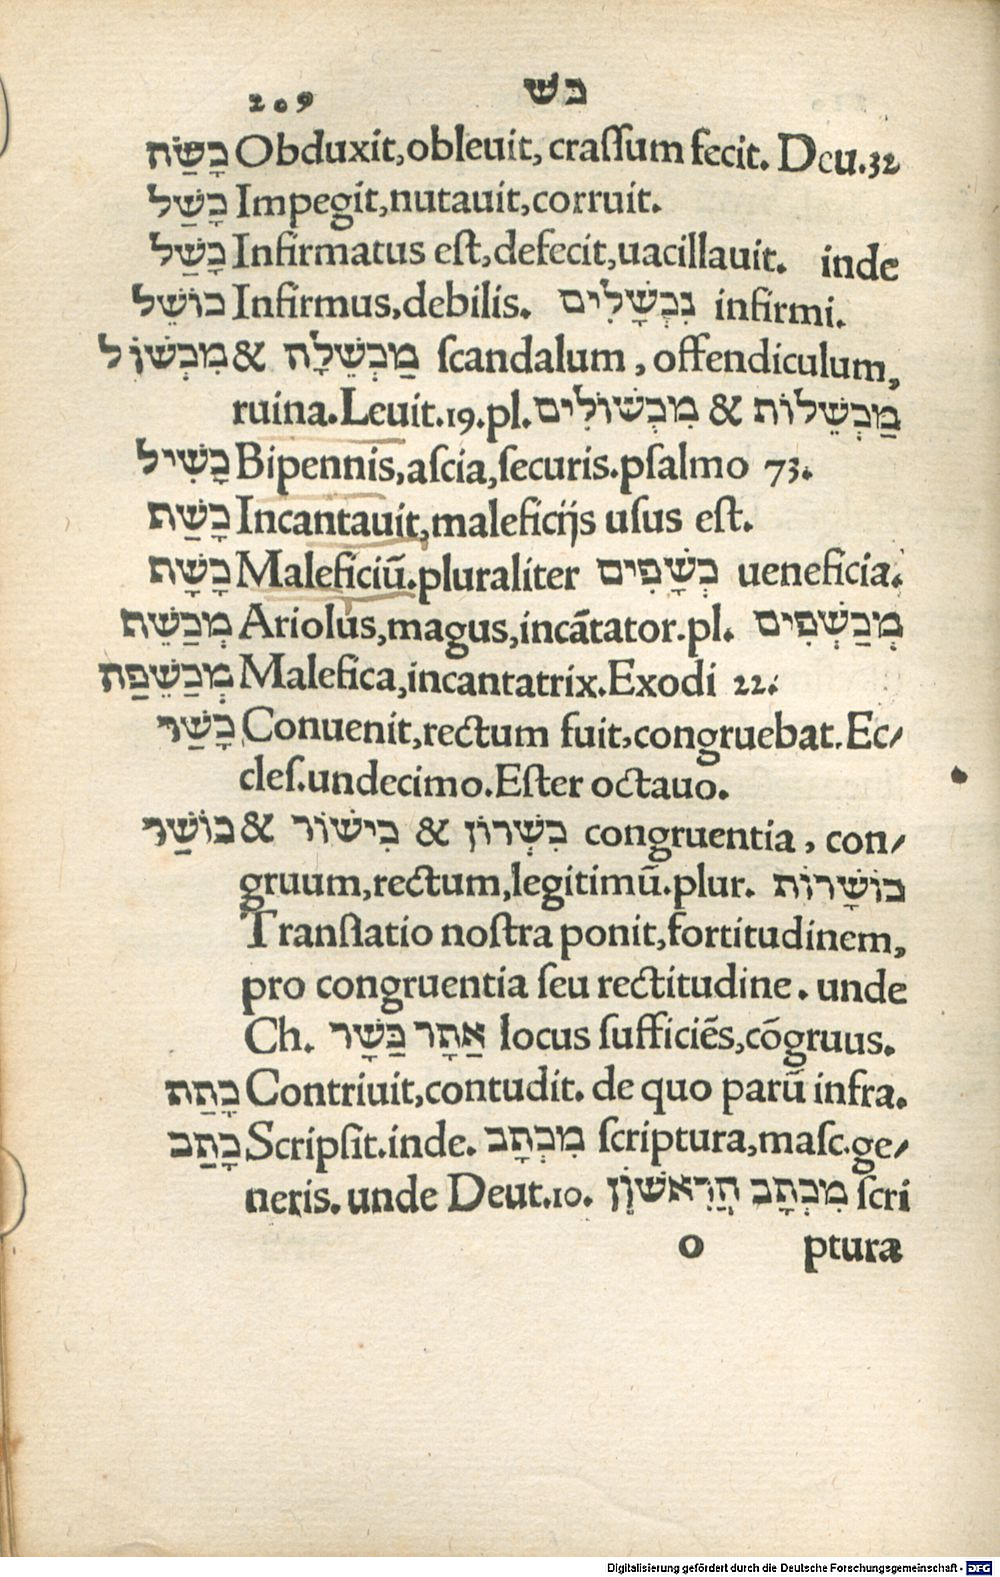 209 כש
כָּשַׂח Obduxit,obleuit, craſſum fecit. Deu.32
כָּשַׁל Impegit,nutauit,corruit.
כָּשַׁל Infirmatus eſt,defecit,uacillauit. inde
כוֹשֵׁל Infirmus,debilis. נִכְשָׁלִים infirmi.
מִכְשׁוֹל & מַכְשֵׁלָה ſcandalum, offendiculum,
ruina.Leuit.19.pl. מִכְשׁוֹלִים & מַכְשֵׁלוֹת
כַּשִּׁיל Bipennis,aſcia,ſecuris.pſalmo 73.
כָּשַׁת Incantauit,maleficijs uſus eſt.
כָּשָׁת Maleficiũ.pluraliter כְשָׁפִים ueneficia.
מְכַשֵּׁת Ariolus,magus,incãtator.pl. מְכַשְּׁפִים
מְכַשֵּׁפַת Malefica,incantatrix.Exodi 22.
כָּשַׁר Conuenit,rectum fuit,congruebat.Ec/
cleſ.undecimo.Eſter octauo.
כוֹשַׁר & כִישׁוֹר & כִשְׁרוֹן congruentia, con/
gruum,rectum,legitimũ.plur. כוֹשָׁרוֹת
Tranſlatio noſtra ponit,fortitudinem,
pro congruentia ſeu rectitudine. unde
Ch. אַתָר כַּשָׁר locus ſufficiẽs,cõgruus.
כָּתַת Contriuit,contudit. de quo parũ infra.
כָּתַב Scripſit.inde. מִכְתָב ſcriptura,maſc.ge/
neris. unde Deut.10. מִכְתָב הָרִאשׁוֹן ſcri
o ptura
Digitalisierung gefördert durch die Deutsche Forschungsgemeinschaft - DFG